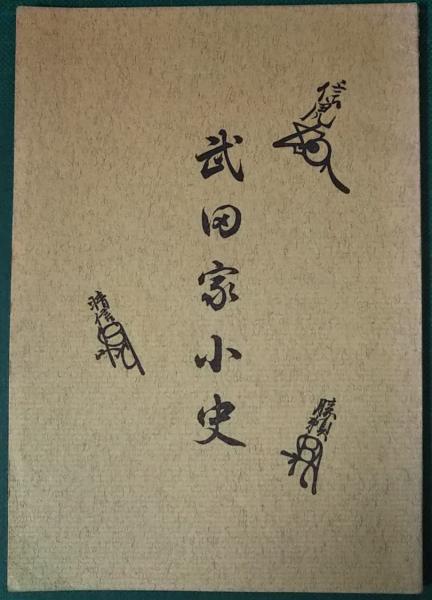 信虎
武田家小史
晴信
勝頼